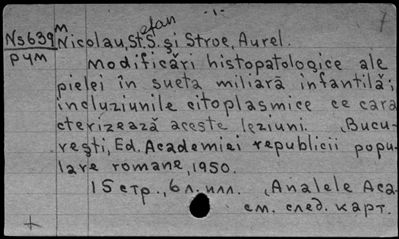 -1-
Ns639м
рум
Nicolau, Ştefan S. şi Stroe, Aurel.
Modificări histopatologice ale
pielei în sueta miliară infantilă;
incluziunile citoplasmice ce cara
cterizează aceste leziuni. Bucu-
reşti, Ed. Academiei republicii popu-
lare romane, 1950.
15 стр., 6 л. илл. (Analele Aca-
см. след. карт.
+